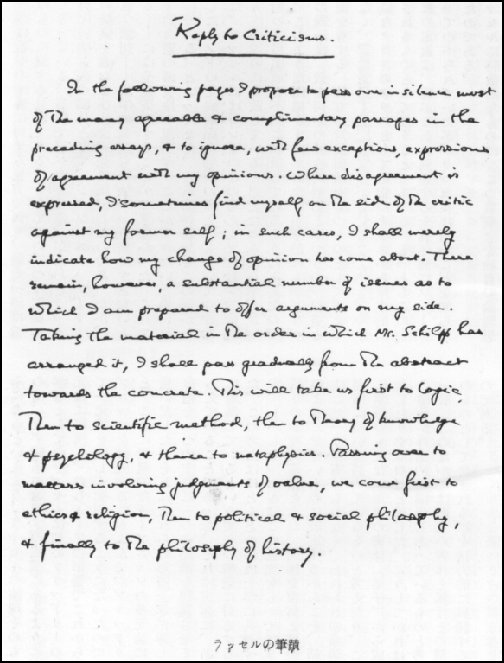 Reply to Criticisms.
In the following pages I propose to pass over in silence most
of the many agreeable & complimentary passages in the
preceding essays, & to ignore, with few exceptions, expressions
of agreement with my opinions. Where disagreement is
expressed, I sometimes find myself on the side of the critic
against my former self; in such cases, I shall merely
indicate how my change of opinion has come about. There
remain, however, a substantial number of issues as to
which I am prepared to offer arguments on my side.
Taking the material in the order in which Mr. Schilpp has
arranged it, I shall pass gradually from the abstract
towards the concrete. This will take us first to logic,
then to scientific method, then to theory of knowledge
& psychology, & thence to metaphysics. Passing over to
matters involving judgments of value, we come first to
ethics & religion, then to political & social philosophy,
& finally to the philosophy of history.
ラッセルの筆蹟